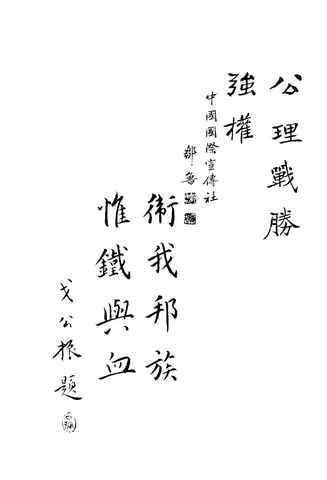 公理戰勝
強權
中國國際宣傳社
鄒魯
衛我邦族
惟鐵與血
戈公振題